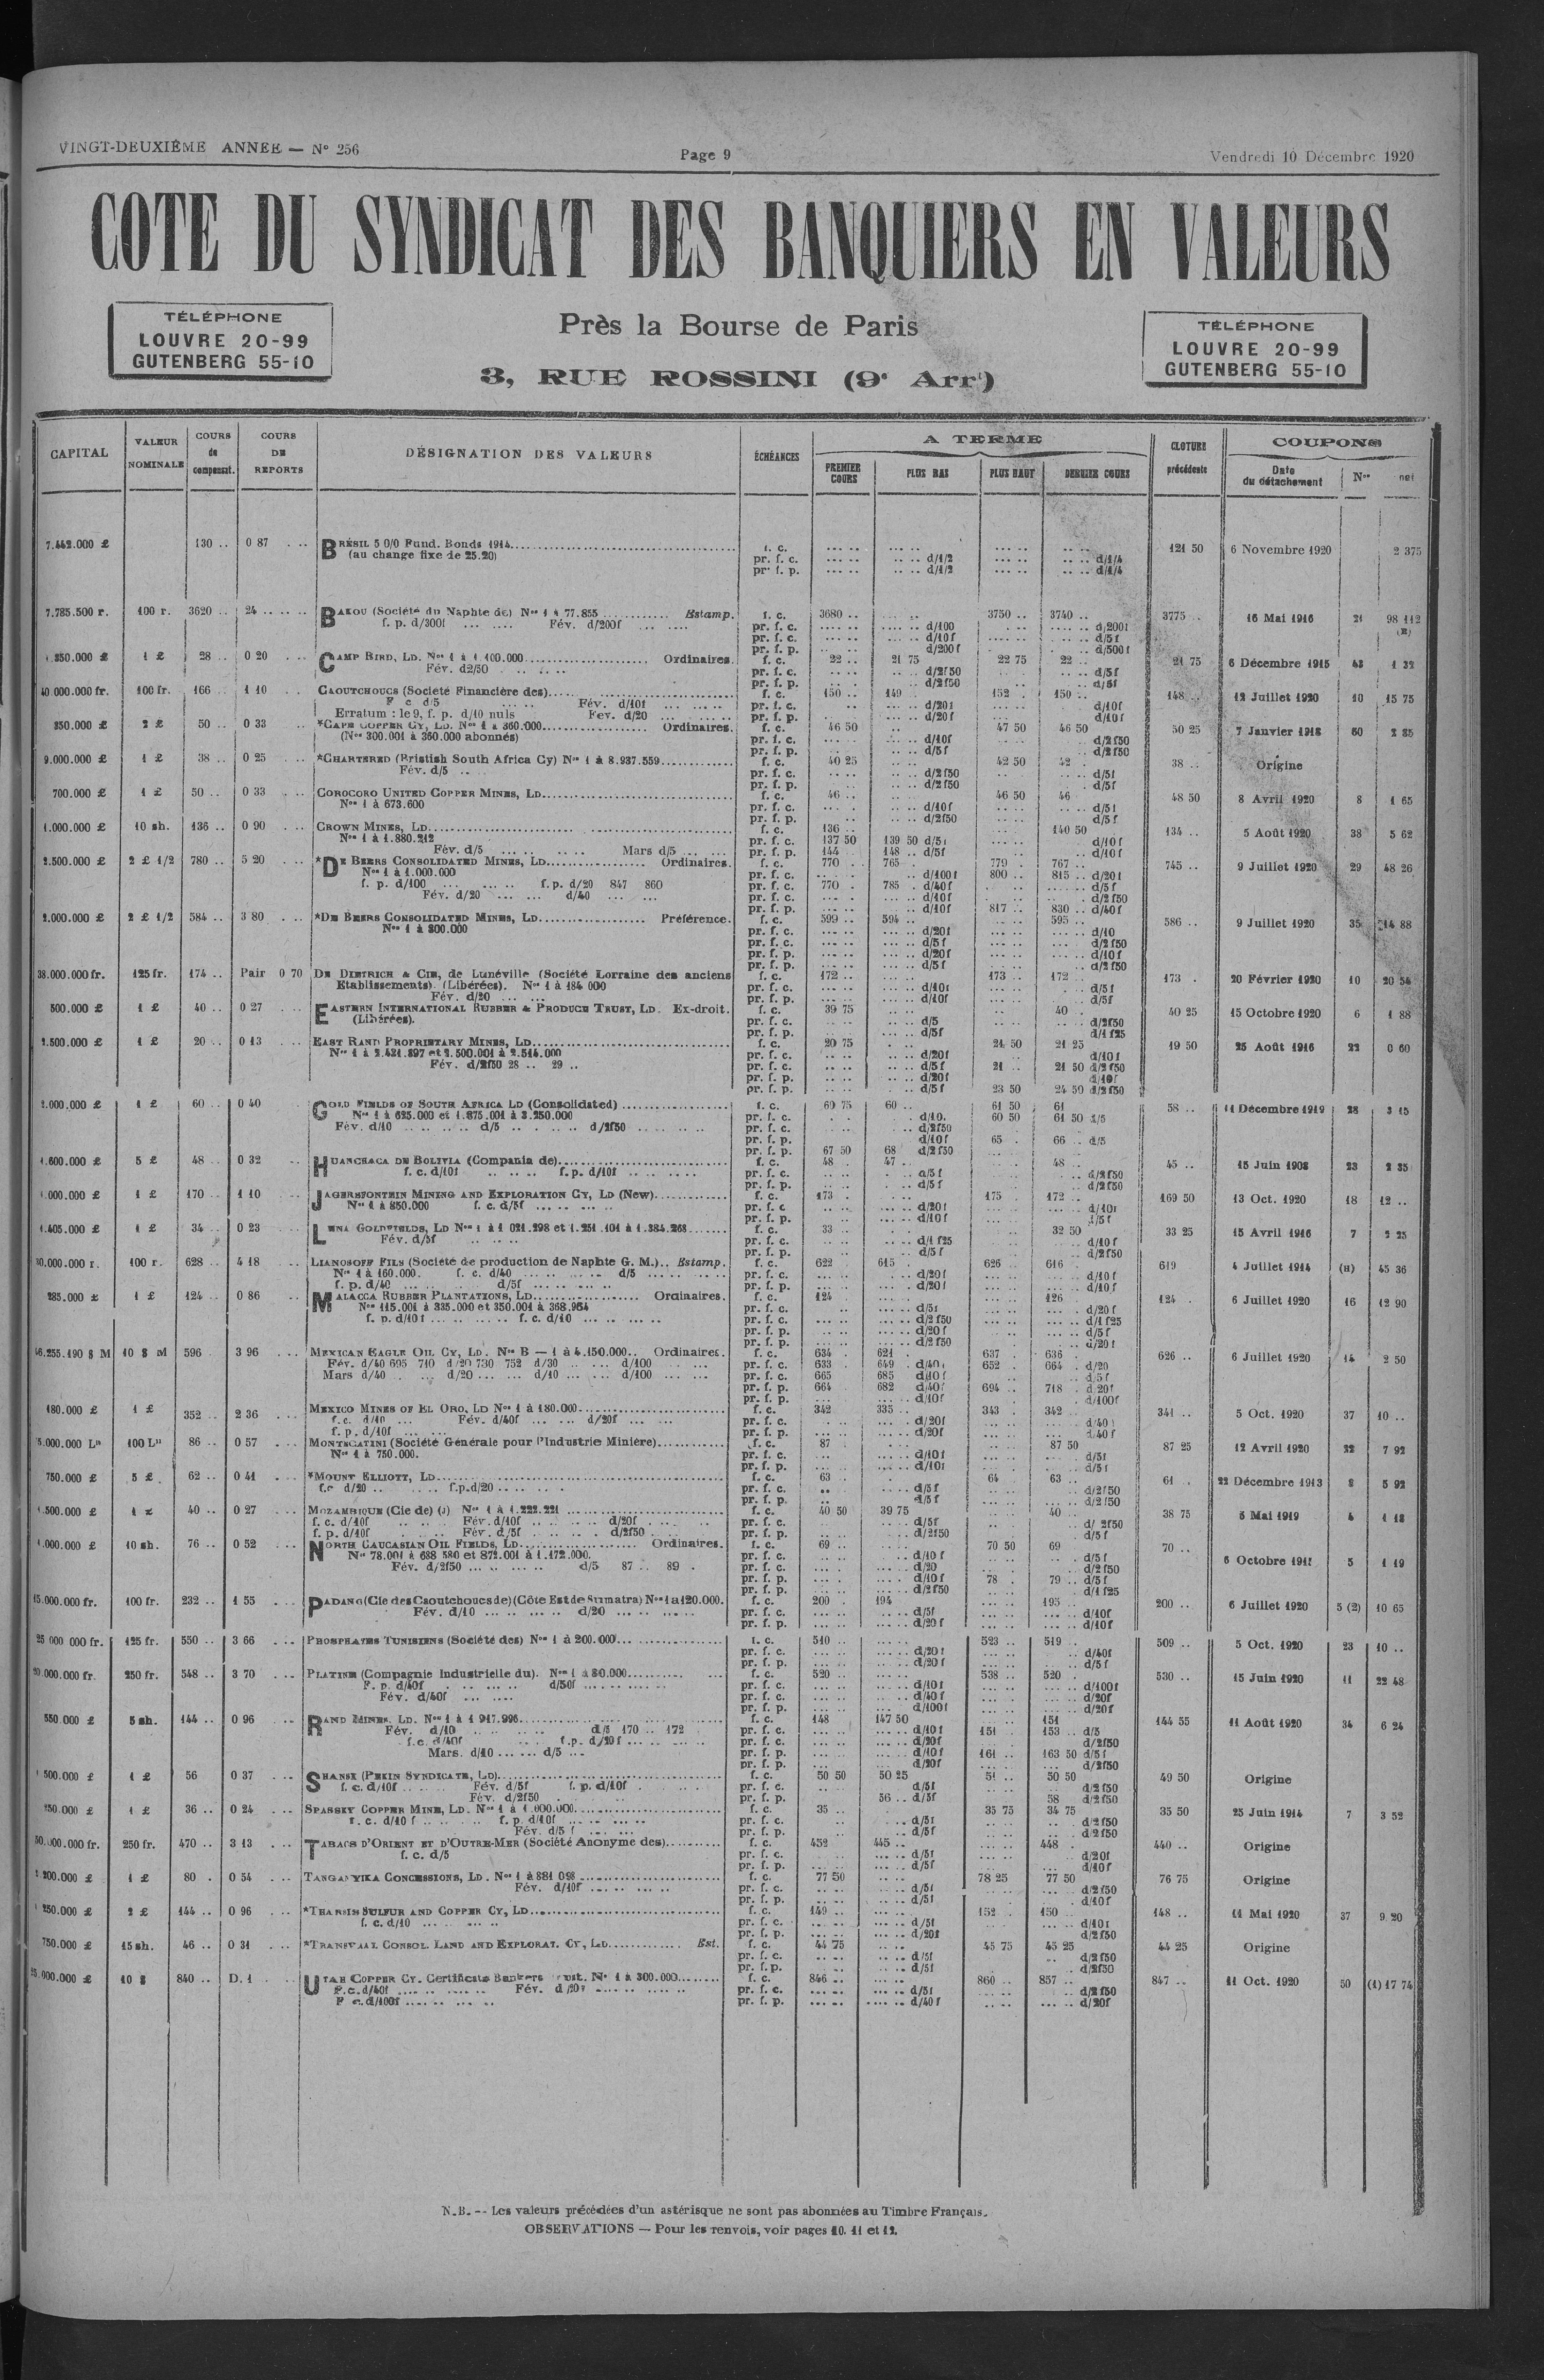 VINGT-DEUXIÈME ANNÉE — N° 256
Page 9
Vendredi 10 Décembre 1920
COTE DU SYNDICAT DES BANQUIERS EN VALEURS
TÉLÉPHONE
LOUVRE 20-99
GUTENBERG 55-10
Près la Bourse de Paris
3, RUE ROSSINI (9e Arrt)
TÉLÉPHONE
LOUVRE 20-99
GUTENBERG 55-10
CAPITAL VALEUR NOMINALE COURS de compensat. COURS DE REPORTS DÉSIGNATION DES VALEURS ÉCHÉANCES A TERME CLOTURE précédente COUPONS
PREMIER COURS PLUS BAS PLUS HAUT DERNIER COURS Date du détachement Nos net
7.442.000 £ 130 .. 0 87 BRÉSIL 5 0/0 Fund. Bonds 1914 f. c. 121 50 6 Novembre 1920 2 375
(au change fixe de 25.20) pr. f. c. d/1/2 d/1/4
pr. f. p. d/1/2 d/1/4
7.785.500 r. 100 r. 3620 .. 24 .. BAKOU (Société du Naphte de) Nos 1 à 77.855 Estamp. f. c. 3680 .. 3750 .. 3740 .. 3775 .. 16 Mai 1916 21 98 112
f. p. d/300f Fév. d/200f pr. f. c. d/100 d/200f
pr. f. c. d/10f d/5f
pr. f. p. d/200f d/500f
1 £ 28 .. 0 20 CAMP BIRD, LD. Nos 1 à 1.100.000 Ordinaires. f. c. 22 .. 21 75 22 75 22 .. 21 75 6 Décembre 1915 43 1 32
Fév. d2/50 pr. f. c. d/2f50 d/5f
pr. f. p. d/2f50 d/5f
40 000.000 fr. 100 fr. 166 .. 1 10 CAOUTCHOUCS (Societé Financière des) f. c. 150 .. 149 .. 152 . 150 .. 148 .. 12 Juillet 1920 10 15 75
F c d/5 Fév. d/10f pr. f. c. d/20f d/10f
Erratum : le 9, f. p. d/10 nuls Fev. d/20 pr. f. p. d/20f d/10f
2 £ 50 .. 0 33 *CAPE COPPER CY, LD. Nos 1 à 360.000 Ordinaires. f. c. 46 50 47 50 46 50 50 25 7 Janvier 1918 60 2 85
(Nos 300.001 à 360.000 abonnés) pr. f. c. d/10f d/2f50
pr. f. p. d/5f d/2f50
9.000.000 £ 1 £ 38 .. 0 25 *CHARTERED (Bristish South Africa Cy) Nos 1 à 8.937.559 f. c. 40 25 42 50 42 . 38 .. Origine
Fév. d/5 pr. f. c. d/2f50 d/5f
pr. f. p. d/2f50 d/5f
700.000 £ 1 £ 50 .. 0 33 COROCORO UNITED COPPER MINES, LD f. c. 46 .. 46 50 46 48 50 8 Avril 1920 8 1 65
Nos 1 à 673.600 pr. f. c. d/10f d/5f
pr. f. p. d/2f50 d/5f
1.000.000 £ 10 sh. 136 .. 0 90 CROWN MINES, LD f. c. 136 .. 140 50 134 .. 5 Août 1920 38 5 62
Nos 1 à 1.880.212 pr. f. c. 137 50 139 50 d/5f d/10f
Fév. d/5 Mars d/5 pr. f. p. 144 148 .. d/5f d/10f
2.500.000 £ 2 £ 1/2 780 .. 5 20 *DE BEERS CONSOLIDATED MINES, LD Ordinaires. f. c. 770 765 . 779 . 767 .. 745 .. 9 Juillet 1920 29 48 26
Nos 1 à 1.000.000 pr. f. c. d/100f 800 .. 815 .. d/20f
f. p. d/100 f. p. d/20 847 860 pr. f. c. 770 . 785 . d/40f d/5f
Fév. d/20 d/40 pr. f. c. d/10f d/2f50
pr. f. p. d/10f 817 .. 830 .. d/40f
2.000.000 £ 2 £ 1/2 584 .. 3 80 *DE BEERS CONSOLIDATED MINES, LD Préférence. f. c. 599 .. 594 .. 595 .. 586 .. 9 Juillet 1920 35 14 88
Nos 1 à 800.000 pr. f. c. d/20f d/10
pr. f. c. d/5f d/2f50
pr. f. p. d/20f d/10f
pr. f. p. d/5f d/2f50
38.000.000 fr. 125 fr. 174 .. Pair 0 70 DE DIETRICH & CIE, de Lunéville (Société Lorraine des anciens f. c. 172 .. 173 .. 172 .. 173 . 20 Février 1920 10 20 54
Etablissements). (Libérées). Nos 1 à 184 000 pr. f. c. d/10f d/5f
Fév. d/20 pr. f. p. d/10f d/5f
500.000 £ 1 £ 40 .. 0 27 EASTERN INTERNATIONAL RUBBER & PRODUCE TRUST, LD. Ex-droit. f. c. 39 75 40 . 40 25 15 Octobre 1920 6 1 88
(Libérées). pr. f. c. d/5 d/2f50
pr. f. p. d/5f d/1 f25
1 £ 20 .. 0 13 EAST RAND PROPRIETARY MINES, LD f. c. 20 75 21 50 21 25 19 50 25 Août 1916 22 0 60
Nos 1 à 2.421.897 et 2.500.001 à 2.514.000 pr. f. c. d/20f d/10f
Fév. d/2f50 28 .. 29 .. pr. f. c. d/5f 21 .. 21 50 d/2f50
pr. f. p. d/20f d/10f
pr. f. p. d/5f 23 50 24 50 d/2f50
1 £ 60 .. 0 40 GOLD FIELDS OF SOUTH AFRICA LD (Consolidated) f. c. 60 75 60 .. 61 50 61 58 .. 11 Décembre 1919 28 3 15
Nos 1 à 625.000 et 1.875.001 à 3.250.000 pr. f. c. d/10. 60 50 61 50 d/5
Fév. d/10 d/5 d/2f50 pr. f. c. d/2f50
pr. f. p. d/10f 65 . 66 .. d/5
pr. f. p. 67 50 68 d/2f50
1.600.000 £ 5 £ 48 .. 0 32 HUANCHACA DE BOLIVIA (Compania de) f. c. 48 . 47 .. 48 .. 45 .. 15 Juin 1908 23 2 35
f. c. d/10f f. p. d/10f pr. f. c. d/5f d/2f50
pr. f. p. d/5f d/2f50
1 £ 170 .. 1 10 JAGERSFONTEIN MINING AND EXPLORATION CY, LD (New) f. c. 173 . 175 172 .. 169 50 13 Oct. 1920 18 12 ..
Nos 1 à 850.000 f. c. d/5f pr. f. c d/20f d/10f
pr. f. p. d/10f d/5f
1.405.000 £ 1 £ 34 .. 0 23 LENA GOLDFIELDS, LD Nos 1 à 1 021.298 et 1.251.101 à 1.384.268 f. c. 33 .. 32 50 33 25 15 Avril 1916 7 2 25
Fév. d/5f pr. f. c. d/1 f25 d/10f
pr. f. p. d/5f d/2f50
100 r. 628 .. 4 18 LIANOSOFF FILS (Societé de production de Naphte G. M.).. Estamp. f. c. 622 615 . 626 .. 616 . 619 4 Juillet 1914 (H) 45 36
Nos 1 à 160.000. f. c. d/40 d/5 pr. f. c. d/20f d/10f
f. p. d/40 d/5f pr. f. p. d/20f d/10f
285.000 £ 1 £ 124 .. 0 86 MALACCA RUBBER PLANTATIONS, LD Ordinaires. f. c. 124 126 . 124 . 6 Juillet 1920 16 12 90
Nos 115.001 à 335.000 et 350.001 à 368.954 pr. f. c. d/5f d/20f
f. p. d/10f f. c. d/10 pr. f. c. d/2f50 d/1f25
pr. f. p. d/20f d/5f
pr. f. p. d/2f50 d/20f
10 $ M 596 3 96 MEXICAN EAGLE OIL CY, LD. Nos B — 1 à 4.150.000 Ordinaires. f. c. 634 621 . 637 . 636 . 626 .. 6 Juillet 1920 14 2 50
Fév. d/40 695 710 d/20 730 752 d/30 d/100 pr. f. c. 633 649 d/40f 652 .. 664 . d/20
Mars d/40 d/20 d/10 d/100 pr. f. c. 665 685 d/10f d/5f
pr. f. p. 664 682 d/40f 694 .. 718 . d/20f
pr. f. p. d/10f d/100f
180.000 £ 1 £ 352 .. 2 36 MEXICO MINES OF EL ORO, LD Nos 1 à 180.000 f. c. 342 335 .. 343 . 342 .. 341 .. 5 Oct. 1920 37 10 ..
f. c. d/10 Fév. d/40f d/20f pr. f. c. d/20f d/40f
f. p. d/10f pr. f. p. d/20f d/40f
100 Les 86 .. 0 57 MONTECATINI (Société Générale pour l'Industrie Minière) f. c. 87 87 50 87 25 12 Avril 1920 32 7 92
Nos 1 à 750.000. pr. f. c. d/10f d/5f
pr. f. p. d/10f d/5f
750.000 £ 5 £ 62 .. 0 41 *MOUNT ELLIOTT, LD f. c. 63 .. 64 63 .. 61 . 22 Décembre 1913 8 5 92
f.c d/20 f.p.d/20 pr. f. c. d/5f d/2f50
pr. f. p. d/5f d/2f50
1 £ 40 .. 0 27 MOZAMBIQUE (Cie de) (J) Nos 1 à 1.222.221 f. c. 40 50 39 75 40 .. 38 75 5 Mai 1919 4 1 18
f. c. d/10f Fév. d/10f d/20f pr. f. c. d/5f d/2f50
f. p. d/10f Fév. d/5f d/2f50 pr. f. p. d/2f50 d/5f
10 sh. 76 .. 0 52 NORTH CAUCASIAN OIL FIELDS, LD Ordinaires. f. c. 69 .. 70 50 69 70 .. 6 Octobre 5 1 19
Nos 78.001 à 688 580 et 872.001 à 1.172.000. pr. f. c. d/10f d/5f
Fév. d/2f50 d/5 87 .. 89 . pr. f. c. d/20 d/2f50
pr. f. p. d/10f 78 . 79 .. d/5f
pr. f. p. d/2f50 d/1f25
15.000.000 fr. 100 fr. 232 .. 1 55 PADANG (Cie des Caoutchoucs de) (Côte Est de Sumatra) Nos 1 a 120.000. f. c. 200 . 194 195 .. 200 .. 6 Juillet 1920 5 (2) 10 65
Fév. d/10 d/20 pr. f. c. d/5f d/10f
pr. f. p. d/20f d/10f
25 000 000 fr. 125 fr. 550 .. 3 66 PHOSPHATES TUNISIENS (Société des) Nos 1 à 200.000 f. c. 510 .. 523 .. 519 .. 509 .. 5 Oct. 1920 23 10 ..
pr. f. c. d/20f d/40f
pr. f. p. d/20f d/5f
20.000.000 fr. 250 fr. 548 .. 3 70 PLATINE (Compagnie Industrielle du). Nos 1 à 80.000 f. c. 520 .. 538 .. 520 . 530 .. 15 Juin 1920 11 22 48
F. p. d/40f d/50f pr. f. c. d/10f d/100f
Fév. d/40f pr. f. c. d/40f d/20f
pr. f. p. d/100f d/20f
550.000 £ 5 sh. 144 .. 0 96 RAND MINES, LD. Nos 1 à 1 917.996 f. c. 148 147 50 151 144 55 11 Août 1920 34 6 24
Fév. d/10 d/5 170 .. 172 pr. f. c. d/10f 151 153 .. d/5
f.c. d/40f f.p. d/20f pr. f. c. d/20f d/2f50
Mars. d/10 d/5 pr. f. p. d/10f 161 .. 163 50 d/5f
pr. f. p. d/20f d/2f50
1 £ 56 0 37 SHANSI (PEKIN SYNDICATE, LD) f. c. 50 50 50 25 51 .. 50 50 49 50 Origine
f. c. d/10f Fév. d/5f f. p. d/10f pr. f. c. d/5f d/2f50
Fév. d/2f50 pr. f. p. 56 .. d/5f 58 d/2f50
1 £ 36 .. 0 24 SPASSKY COPPER MINE, LD. Nos 1 à 1.000.000 f. c. 35 .. 35 75 34 75 35 50 25 Juin 1914 7 3 52
f. c. d/10f f. p. d/10f pr. f. c. d/5f d/2f50
Fév. d/5f pr. f. p. d/5f d/2f50
250 fr. 470 .. 3 13 TABACS D'ORIENT ET D'OUTRE-MER (Société Anonyme des) f. c. 452 445 .. 448 . 440 .. Origine
f. c. d/5 pr. f. c. d/5f d/20f
pr. f. p. d/5f d/10f
1 £ 80 . 0 54 TANGANYIKA CONCESSIONS, LD. Nos 1 à 881 098 f. c. 77 50 78 25 77 50 76 75 Origine
Fév. d/10f pr. f. c. d/5f d/2f50
pr. f. p. d/5f d/10f
2 £ 144 .. 0 96 *THARSIS SULFUR AND COPPER CY, LD f. c. 149 .. 152 . 150 .. 148 .. 14 Mai 1920 37 9.20
f. c. d/10 pr. f. c. d/5f d/10f
pr. f. p. d/20f d/2f50
750.000 £ 15 sh. 46 .. 0 31 *TRANSVAAL CONSOL. LAND AND EXPLORAT. CY, LD Est. f. c. 44 75 45 75 45 25 44 25 Origine
pr. f. c. d/5f d/2f50
pr. f. p. d/5f d/2f50
10 $ 840 .. D. 1 UTAH COPPER CY. Certificats Bankers Nos 1 à 300.000 f. c. 846 .. 860 .. 857 .. 847 .. 11 Oct. 1920 50 (1) 17 74
F.c. d/40f Fév. d/20f pr. f. c. d/5f d/2f50
F c. d/100f pr. f. p. d/40f d/20f
N.B. -- Les valeurs précédées d'un astérisque ne sont pas abonnées au Timbre Français.
OBSERVATIONS — Pour les renvois, voir pages 10. 11 et 12.